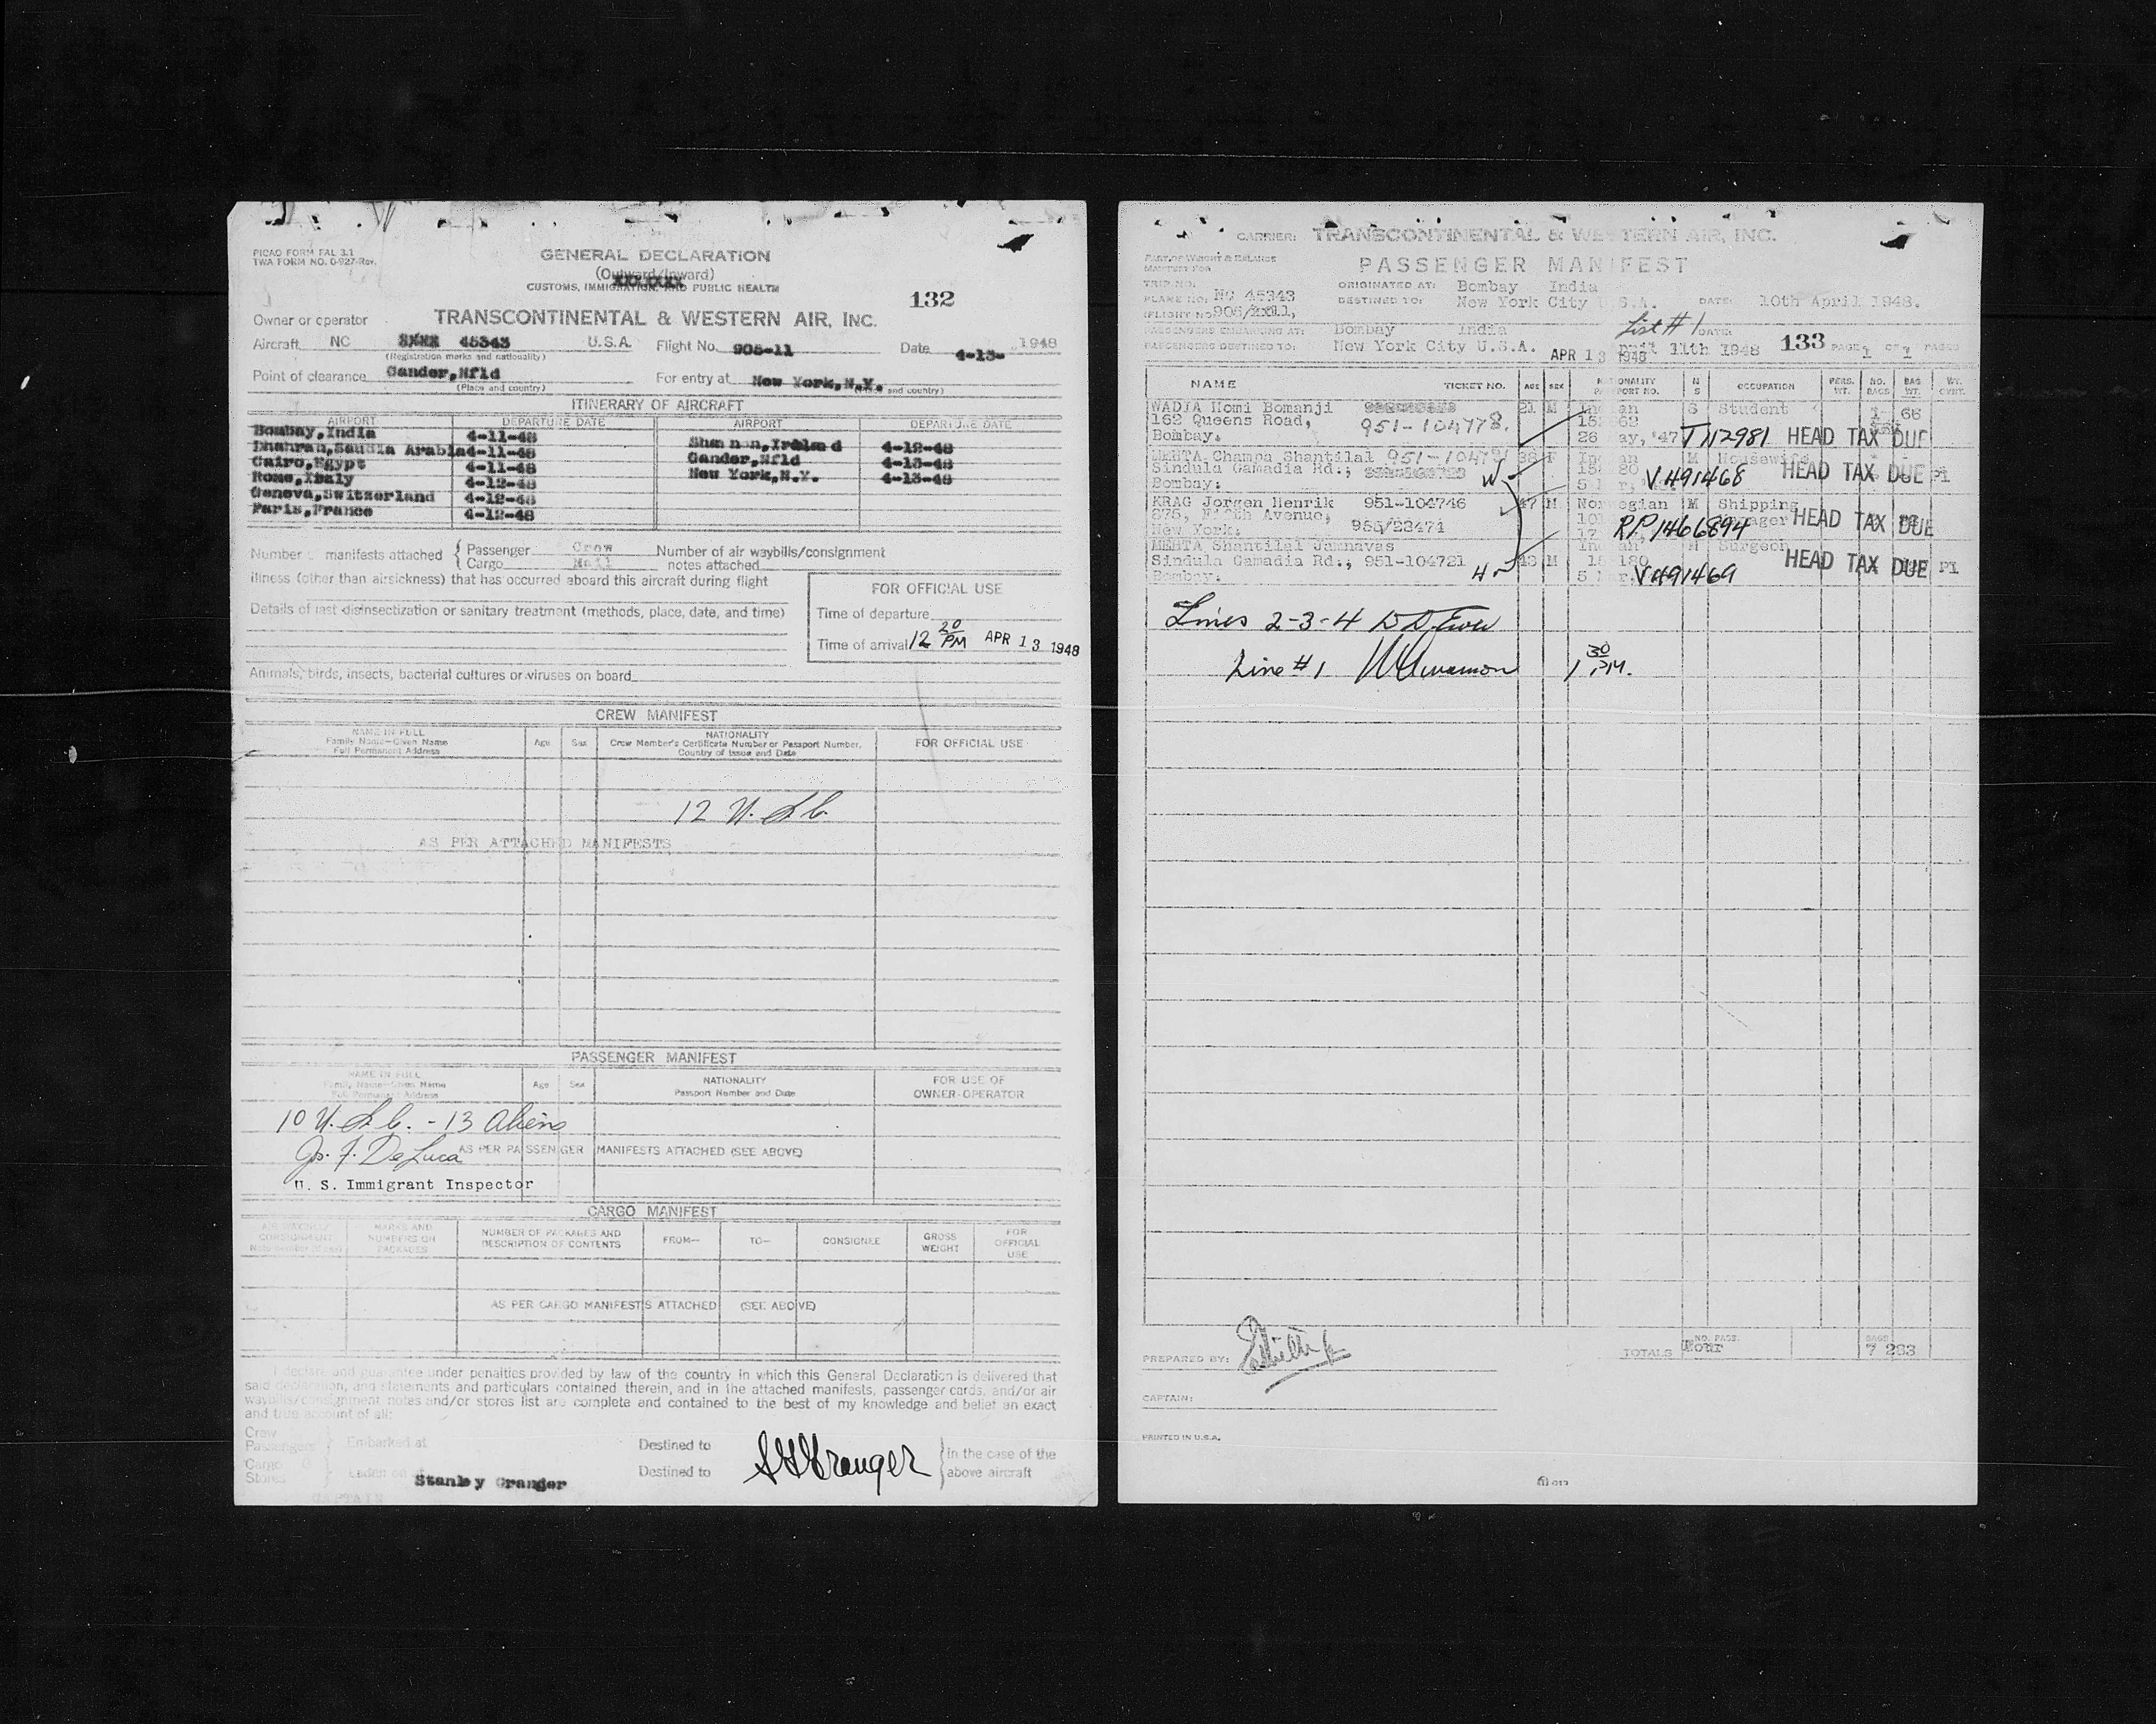 PICAO FORM FAL 3.1
TWA FORM NO. 0-927-Rev.
GENERAL DECLARATION
(Outward/Inward)
CUSTOMS, IMMIGRATION, AND PUBLIC HEALTH
132
Owner or operator TRANSCONTINENTAL & WESTERN AIR, INC.
Aircraft NC 45343 U.S.A. Flight No. 905-11 Date 4-13- 1948
(Registration marks and nationality)
Point of clearance Gander,Nfld For entry at New York,N.Y.
(Place and country) and country)
ITINERARY OF AIRCRAFT
AIRPORT DEPARTURE DATE AIRPORT DEPARTURE DATE
Bombay,India 4-11-48
Dhahran,Saudia Arabia 4-11-48 Shannon,Ireland 4-12-48
Cairo,Egypt 4-11-48 Gander,Nfld 4-13-48
Rome,Italy 4-12-48 New York,N.Y. 4-13-48
Geneva,Switzerland 4-12-48
Paris,France 4-12-48
Number manifests attached { Passenger Crew Number of air waybills/consignment
Cargo Mail notes attached
Illness (other than airsickness) that has occurred aboard this aircraft during flight
FOR OFFICIAL USE
Details of last disinsectization or sanitary treatment (methods, place, date, and time)
Time of departure
Time of arrival 12 20 PM APR 13 1948
Animals, birds, insects, bacterial cultures or viruses on board
CREW MANIFEST
NAME IN FULL
Family Name—Given Name
Full Permanent Address
Age Sex
NATIONALITY
Crew Member's Certificate Number or Passport Number,
Country of Issue and Date
FOR OFFICIAL USE
12 U.S.C.
AS PER ATTACHED MANIFESTS
PASSENGER MANIFEST
NAME IN FULL
Family Name—Given Name
Full Permanent Address
Age Sex
NATIONALITY
Passport Number and Date
FOR USE OF
OWNER-OPERATOR
10 U.S.C. - 13 Aliens
Jos. F. DeLuca AS PER PASSENGER MANIFESTS ATTACHED (SEE ABOVE)
U. S. Immigrant Inspector
CARGO MANIFEST
AIR WAYBILL/
CONSIGNMENT
MARKS AND
NUMBERS ON
PACKAGES
NUMBER OF PACKAGES AND
DESCRIPTION OF CONTENTS
FROM— TO— CONSIGNEE
GROSS
WEIGHT
FOR
OFFICIAL
USE
AS PER CARGO MANIFESTS ATTACHED (SEE ABOVE)
I declare and guarantee under penalties provided by law of the country in which this General Declaration is delivered that
said declaration, and statements and particulars contained therein, and in the attached manifests, passenger cards, and/or air
waybills/consignment notes and/or stores list are complete and contained to the best of my knowledge and belief an exact
and true account of all:
Crew
Passengers } Embarked at Destined to
Cargo
Stores } Laden on Destined to
S H Granger
in the case of the
above aircraft
Stanley Granger
CAPTAIN
CARRIER: TRANSCONTINENTAL & WESTERN AIR, INC.
PART OF WEIGHT & BALANCE
MANIFEST FOR
PASSENGER MANIFEST
TRIP NO: ORIGINATED AT: Bombay India
PLANE NO: NC 45343 DESTINED TO: New York City U.S.A. DATE: 10th April 1948.
(FLIGHT NO 905/
List #1
PASSENGERS EMBARKING AT: Bombay India DATE:
PASSENGERS DESTINED TO: New York City U.S.A. APR 13 1948 April 11th 1948 133 PAGE 1 OF 1 PAGES
NAME TICKET NO. AGE SEX NATIONALITY PASSPORT NO. M S OCCUPATION PERS. WT. NO. BAGS BAG WT. WT. OVRT.
WADIA Homi Bomanji 21 M Indian S Student 1 66
162 Queens Road, 951-104778.
Bombay. 26 May, '47 T 712981 HEAD TAX DUE
MEHTA Champa Shantilal 38 F Indian M Housewife
Sindula Gamadia Rd., V 491468 HEAD TAX DUE P1
Bombay.
KRAG Jorgen Henrik 951-104746 47 M Norwegian M Shipping
Avenue, Manager HEAD TAX DUE
New York. 956/23471 RP 1466894
MEHTA Shantilal Jamnavas Indian M Surgeon
Sindula Gamadia Rd., 951-104721 43 M HEAD TAX DUE P1
Bombay. V 491469
Lines 2-3-4
Line #1 1 30 P.M.
PREPARED BY:
TOTALS NO. PASS. Four BAGS 7 283
CAPTAIN:
PRINTED IN U.S.A.